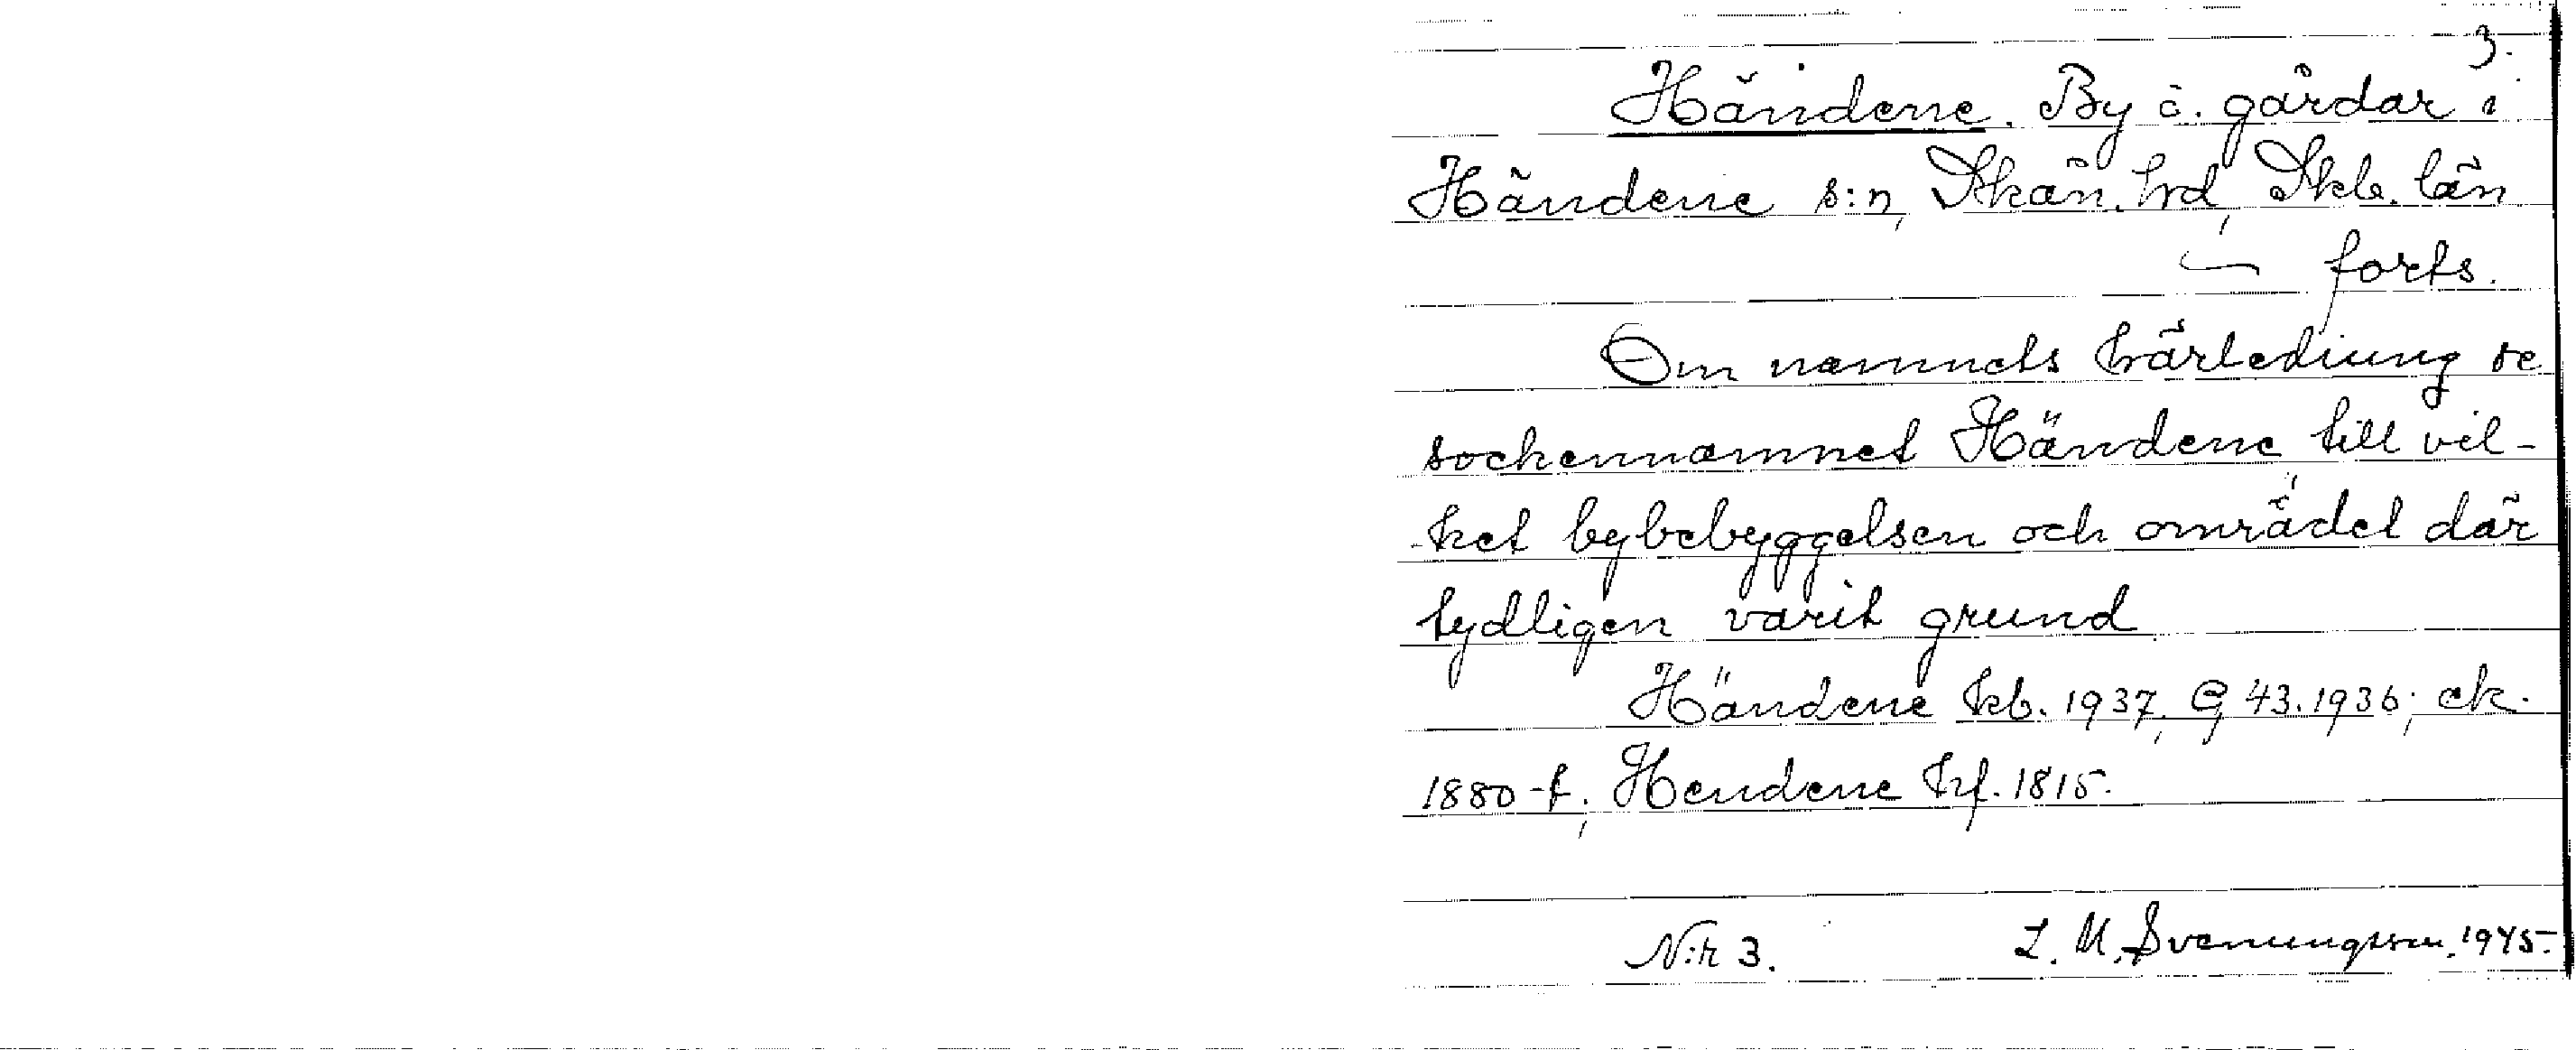 3.
Händene. By o. gårdar i
Händene s:n, Skån. hrd, Skb. län
forts.
Om namnets härledning se
sockennamnet Händene till vil-
ket bybebyggelsen och området där
tydligen varit grund
Händene kb. 1937, G 43. 1936; ek.
1880-t; Hendene hf. 1815.
N:r 3. L. M. Svenungsson. 1945.